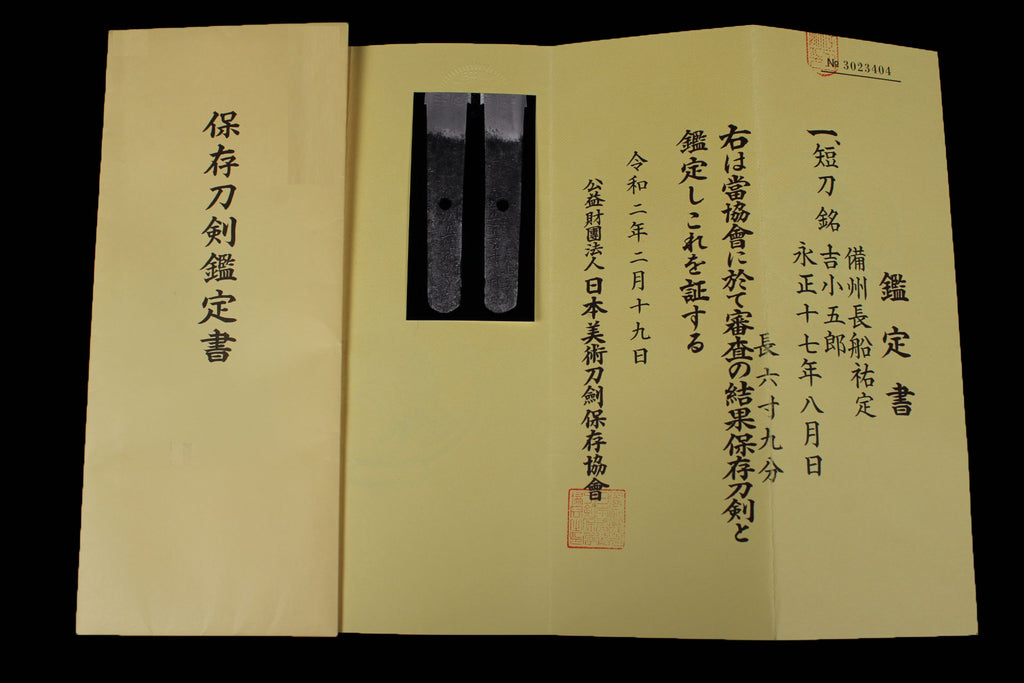 保存刀剣鑑定書
№ 3023404
鑑定書
一、短刀 銘
備州長船祐定
吉小五郎
永正十七年八月日
長六寸九分
右は當協會に於て審査の結果保存刀剣と
鑑定しこれを証する
令和二年二月十九日
公益財團法人日本美術刀劍保存協會